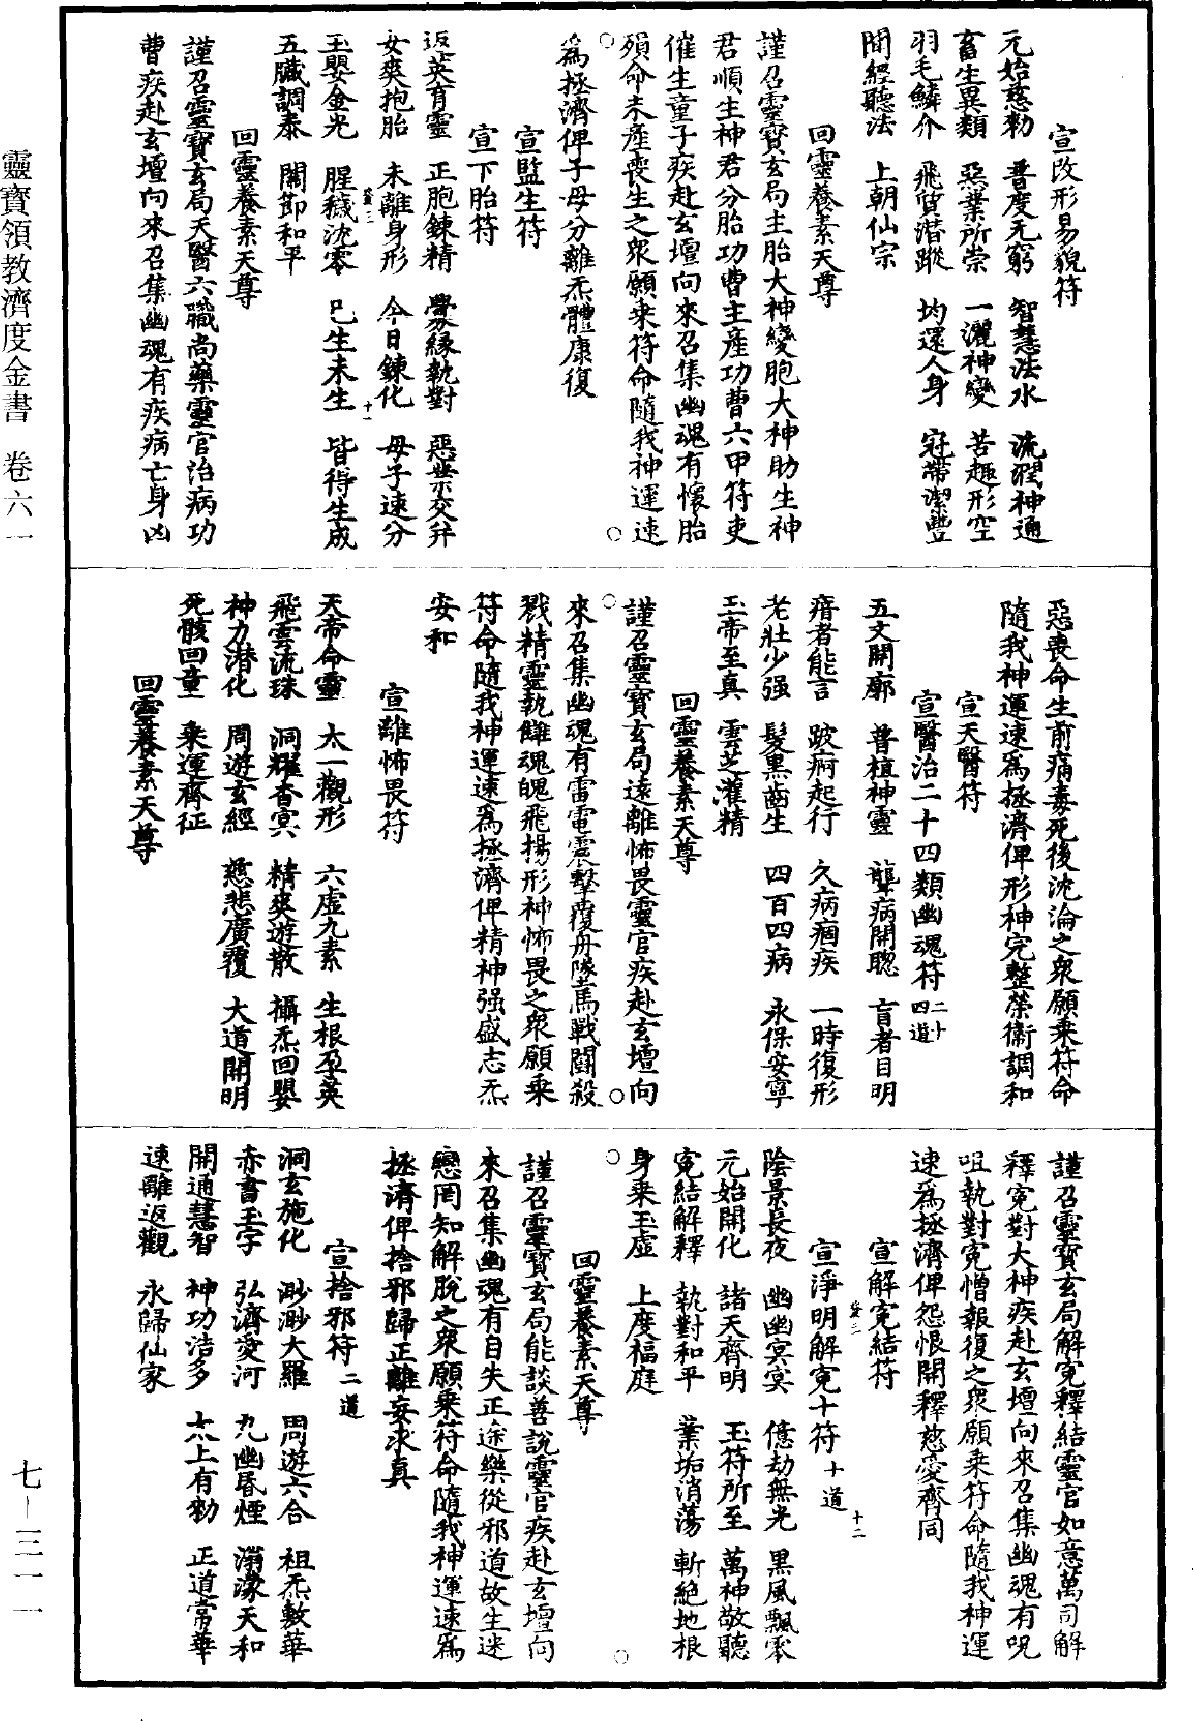 宣改形易貌符
元始慈勑　普度无窮　智慧法水　流潤神通
畜生異類　惡業所崇　一灑神變　苦趣形空
羽毛鱗介　飛質潛蹤　均還人身　冠帶潔豐
聞經聽法　上朝仙宗
回靈養素天尊
謹召靈寶玄局主胎大神變胞大神助生神
君順生神君分胎功曹主產功曹六甲符吏
催生童子疾赴玄壇向來召集幽魂有懷胎
殞命未產喪生之衆願乘符命隨我神運速
為拯濟俾子母分離炁體康復
宣監生符
宣下胎符
返英育靈　正胞鍊精　釁緣執對　惡業交并
女爽抱胎　未離身形　今日鍊化　母子速分
玉嬰金光　腥穢沈零　已生未生　皆得生成
五臟調泰　關節和平
回靈養素天尊
謹召靈寶玄局天醫六職尚藥靈官治病功
曹疾赴玄壇向來召集幽魂有疾病亡身凶
十一
惡喪命生前痛毒死後沈淪之衆願乘符命
隨我神運速爲拯濟俾形神完整榮衞調和
宣天醫符
宣醫治二十四類幽魂符二十四道
五文開廓　普植神靈　聾病開聰　盲者目明
瘖者能言　跛痾起行　久病痼疾　一時復形
老壯少强　髮黑齒生　四百四病　永保安寧
玉帝至真　雲芝灌精
回靈養素天尊
謹召靈寶玄局遠離怖畏靈官疾赴玄壇向
來召集幽魂有雷電震擊覆舟墜馬戰鬭殺
戮精靈執讎魂魄飛揚形神怖畏之衆願乘
符命隨我神運速爲拯濟俾精神强盛志炁
安和
宣離怖畏符
天帝命靈　太一觀形　六虛九素　生根孕英
飛雲流珠　洞耀杳冥　精爽遊散　攝炁回嬰
神力潛化　周遊玄經　慈悲廣覆　大道開明
死骸回童　乘運齊征
回靈養素天尊
謹召靈寶玄局解寃釋結靈官如意萬司解
釋寃對大神疾赴玄壇向來召集幽魂有呪
咀執對寃憎報復之衆願乘符命隨我神運
速爲拯濟俾怨恨開釋慈愛齊同
宣解寃結符
十二
宣淨明解寃十符十道
陰景長夜　幽幽冥冥　億劫無光　黑風飄零
元始開化　諸天齊明　玉符所至　萬神敬聽
寃結解釋　執對和平　業垢消蕩　斬絕地根
身乘玉虛　上度福庭
回靈養素天尊
謹召靈寶玄局能談善說靈官疾赴玄壇向
來召集幽魂有自失正途樂從邪道故生迷
戀罔知解脫之衆願乘符命隨我神運速爲
拯濟俾捨邪歸正離妄求真
宣捨邪符二道
洞玄施化　渺渺大羅　周遊六合　祖炁敷華
赤書玉字　弘濟愛河　九幽昏煙　溟濛天和
開通慧智　神功浩多　太上有勑　正道常華
速離返觀　永歸仙家
靈寶領教濟度金書　卷六一
七—三一一